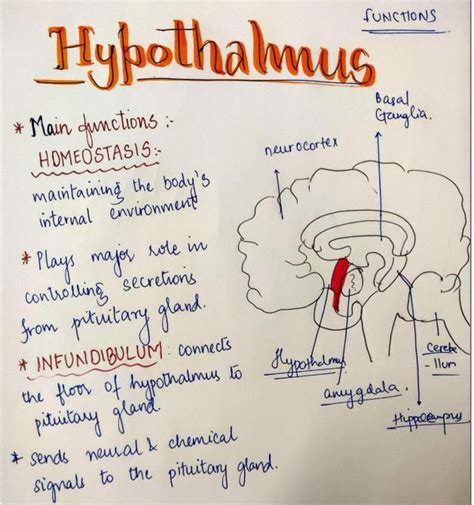 FUNCTIONS
Hypothalmus
* Main functions :-
HOMEOSTASIS:-
maintaining the body's
internal environment
* Plays major role in
controlling secretions
from pituitary gland.
* INFUNDIBULUM: connects
the floor of hypothalmus to
pituitary gland.
* sends neural & chemical
signals to the pituitary gland.
Basal
Ganglia.
neurocortex
Hypothalmus
amygdala.
Cerebe
-llum
Hippocampus